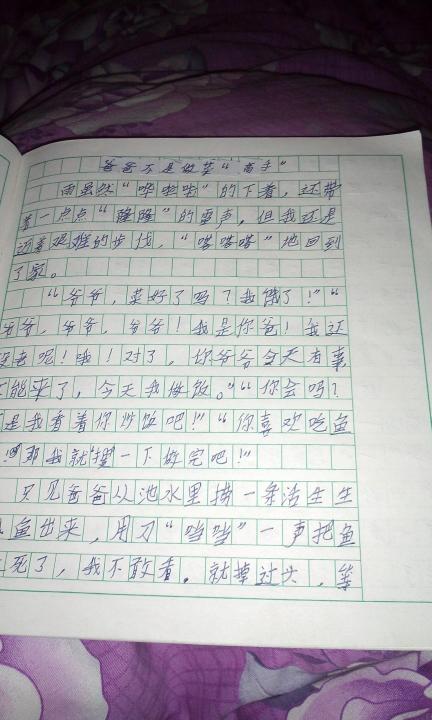 爸爸不是做菜“高手”
雨虽然“哗啦啦”的下着，还带
着一点点“隆隆”的雷声，但我还是
迈着艰难的步伐，“嗒嗒嗒”地回到
了家。
“爷爷，菜好了吗？我饿了！”“
爷爷，爷爷，爷爷！我是你爸！我还
没老呢！哦！对了，你爷爷今天有事
不能来了，今天我做饭。”“你会吗？
是我看着你炒饭吧！”“你喜欢吃鱼
那我就 一下做完吧！”
只见爸爸从池水里捞一条活生生
鱼出来，用刀“当当”一声把鱼
死了，我不敢看。就掉过头，等